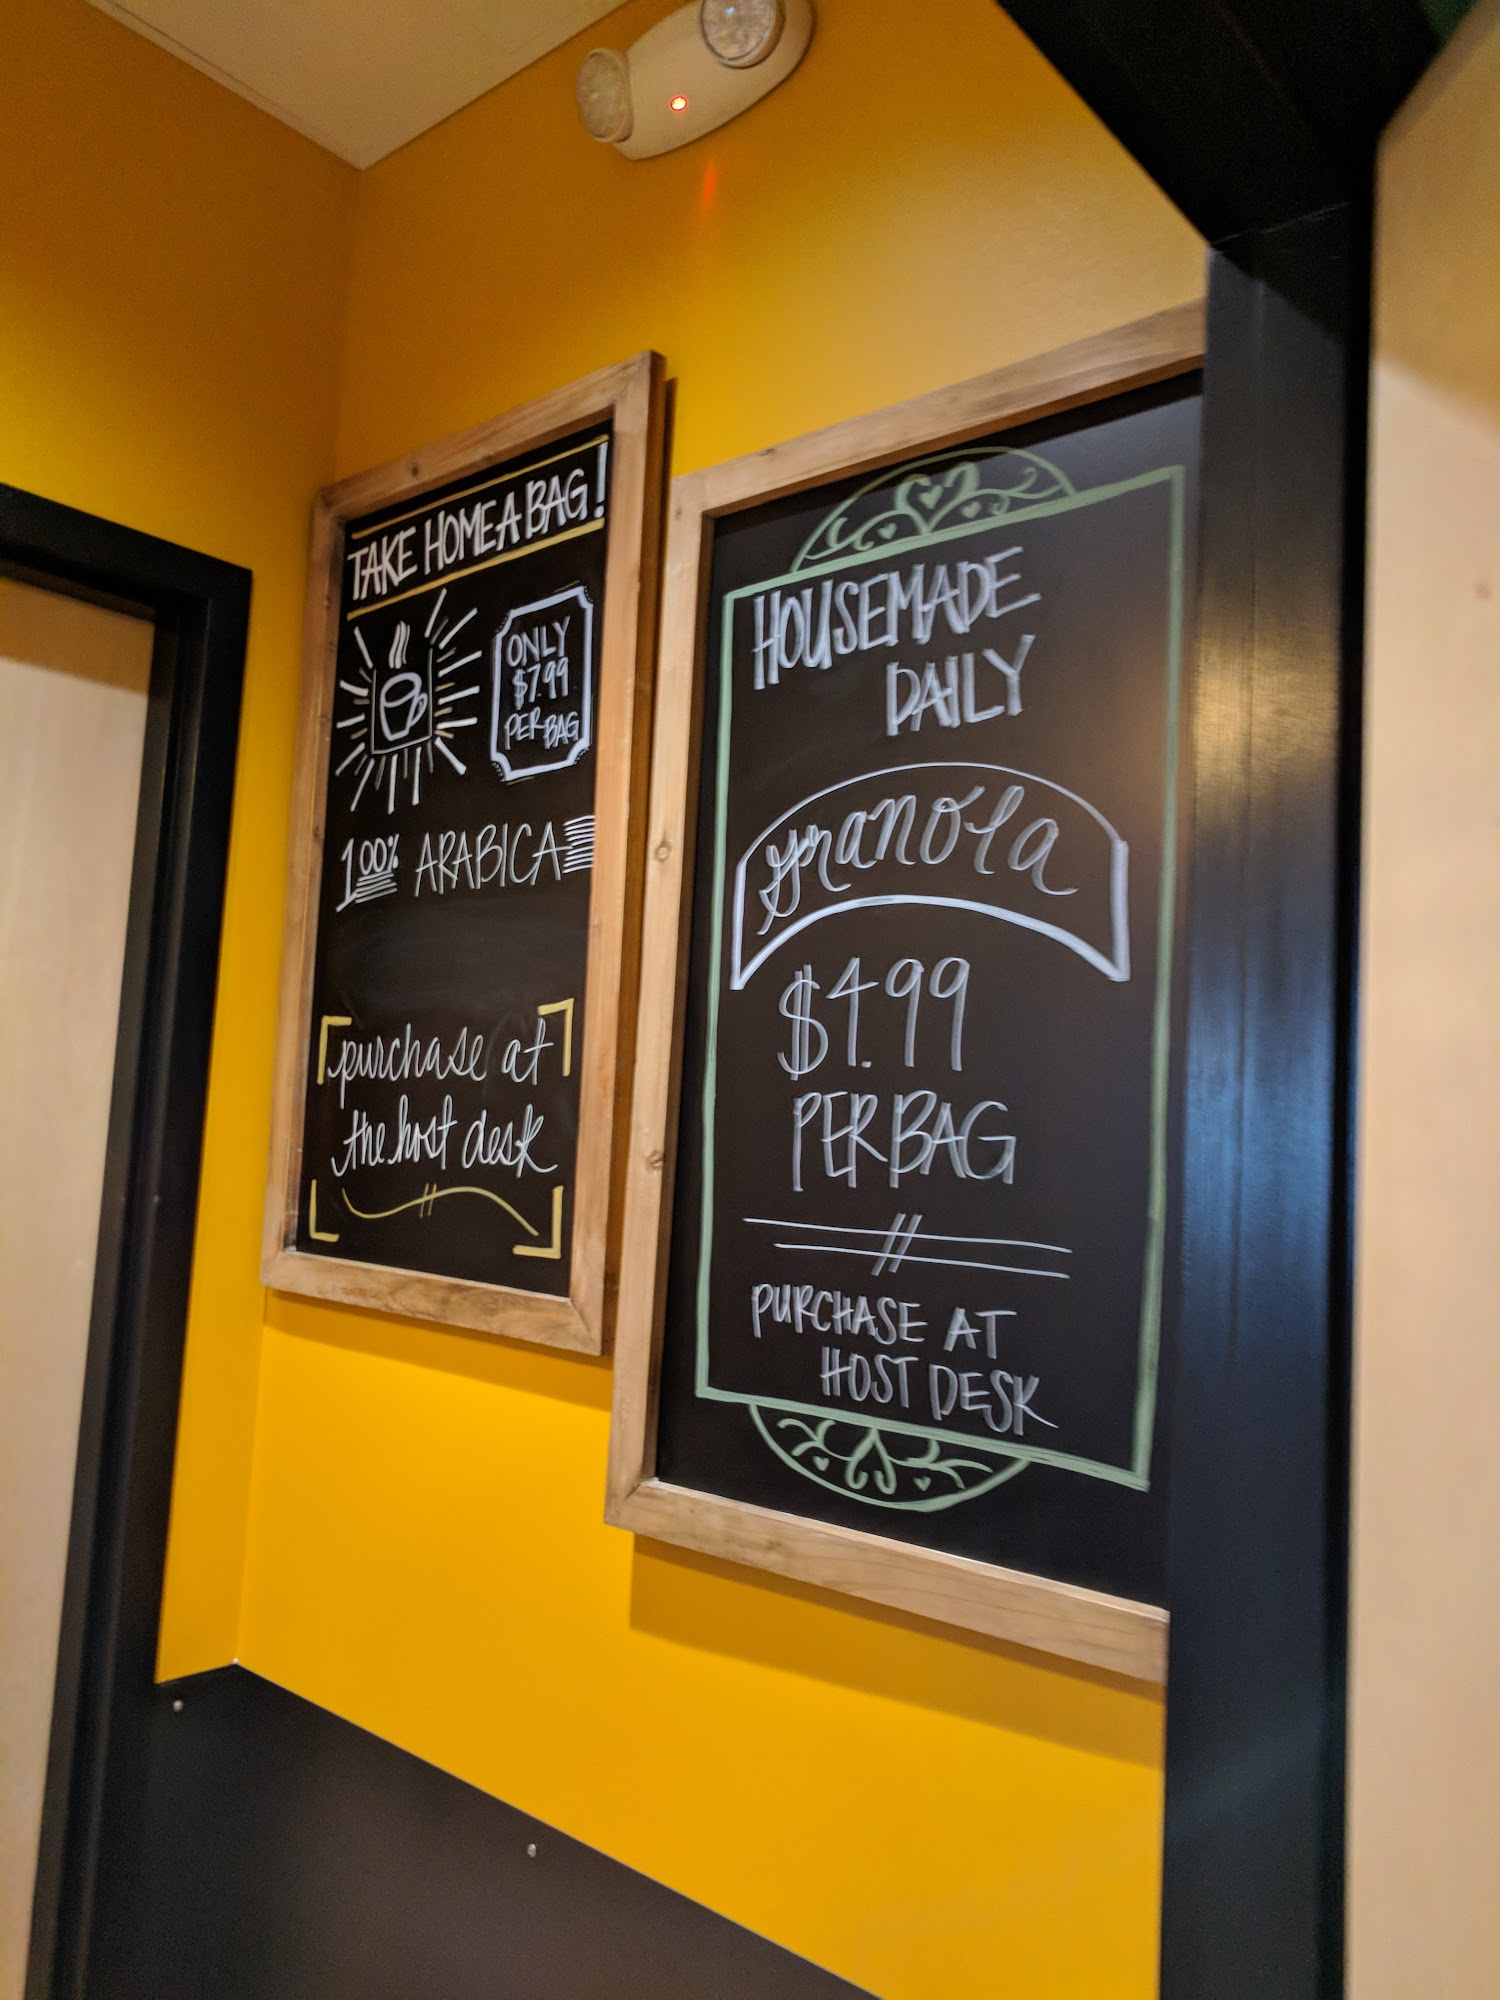 TAKE HOME A BAG!
ONLY
$7.99
PER BAG
100% ARABICA
purchase at
the host desk
HOUSEMADE
DAILY
granola
$4.99
PER BAG
PURCHASE AT
HOST DESK